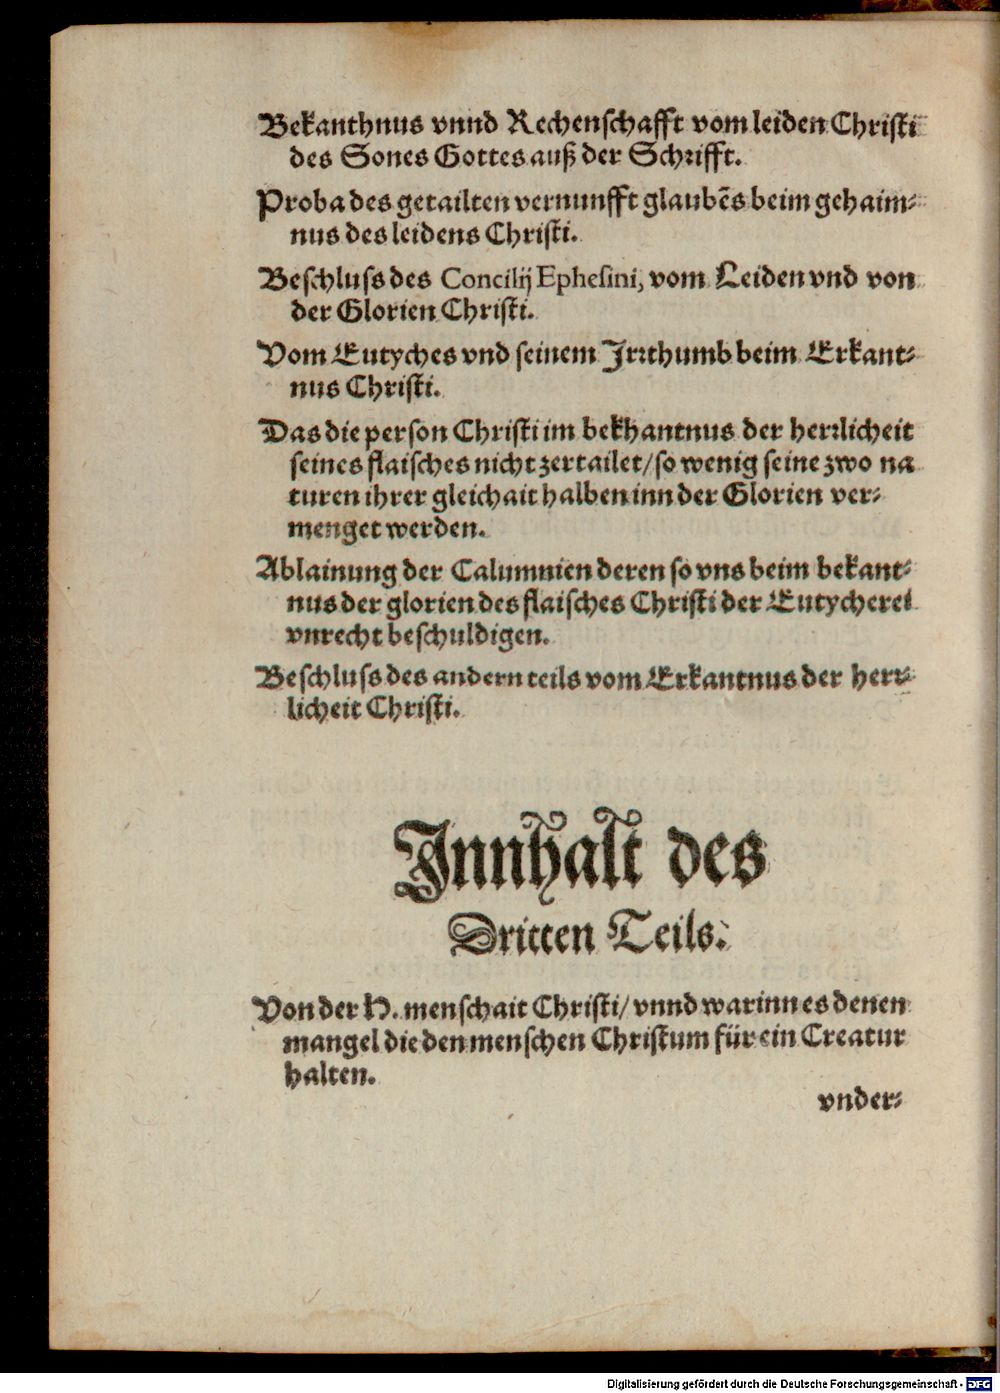 Bekanthnus vnnd Rechenschafft vom leiden Christi
des Sones Gottes auß der Schrifft.
Proba des getailten vernunfft glaubẽs beim gehaim⸗
nus des leidens Christi.
Beschluss des Concilij Ephesini, vom Leiden vnd von
der Glorien Christi.
Vom Eutyches vnd seinem Irrthumb beim Erkant⸗
nus Christi.
Das die person Christi im bekhantnus der herrlicheit
seines flaisches nicht zertailet/so wenig seine zwo na
turen ihrer gleichait halben inn der Glorien ver⸗
menget werden.
Ablainung der Calumnien deren so vns beim bekant⸗
nus der glorien des flaisches Christi der Eutycherei
vnrecht beschuldigen.
Beschluss des andern teils vom Erkantnus der herr⸗
licheit Christi.
Innhalt des
Dritten Teils.
Von der H. menschait Christi/ vnnd warinn es denen
mangel die den menschen Christum für ein Creatur
halten.
vnder⸗
Digitalisierung gefördert durch die Deutsche Forschungsgemeinschaft - DFG